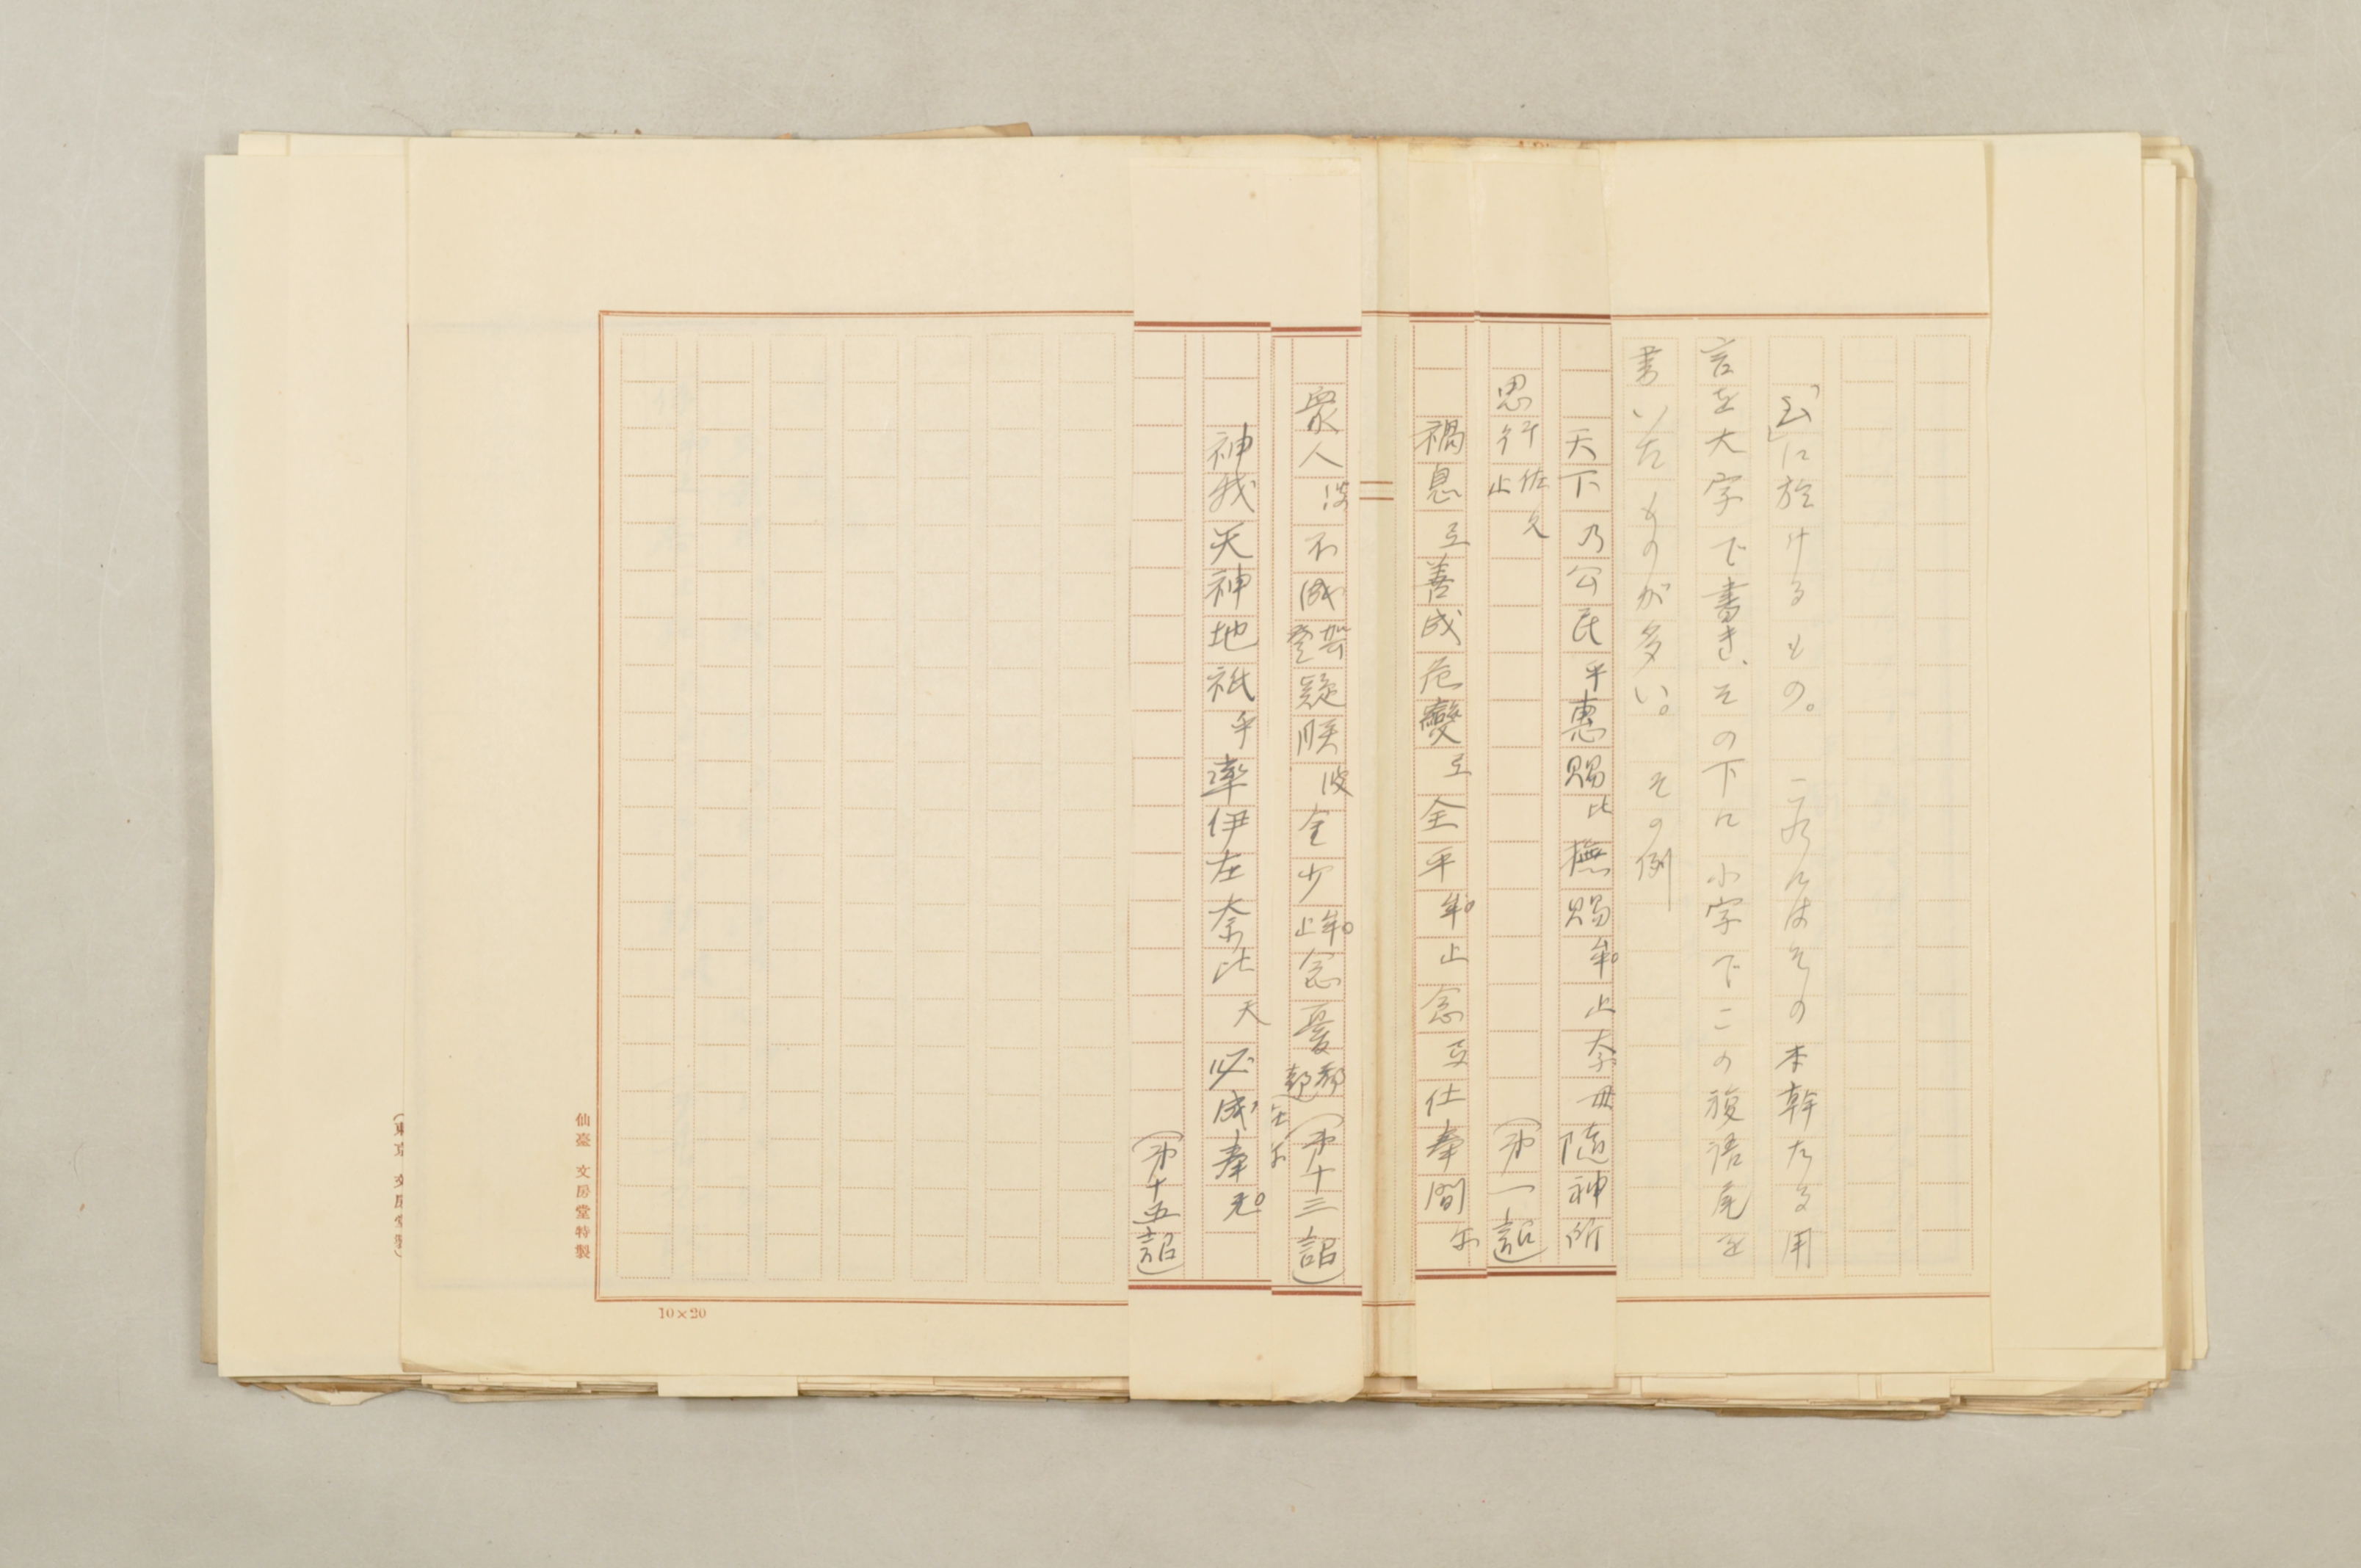 「ム」に於けるもの。 これはその本幹たる用
言を大字で書き、その下に小字でこの複語尾を
書いたものが多い。 その例
天下乃公民乎恵賜比撫賜牟止奈母随神所
思行佐久止 (第一詔)
禍息弖善成危變弖全平牟止念弖仕奉間尓
衆人波不成 疑朕波金少牟止念憂 (第十三詔)
神我天神地祇乎率伊左奈比天必成奉无
(第十五詔)
仙臺 文房堂特製
10×20